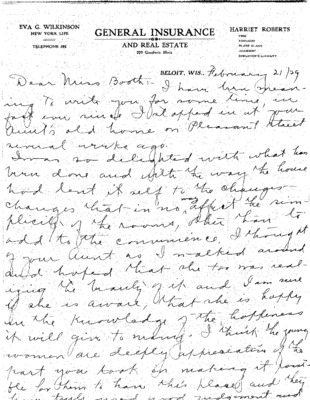 EVA G. WILKINSON
NEW YORK LIFE
TELEPHONE
GENERAL INSURANCE
AND REAL ESTATE
HARRIET ROBERTS
FIRE
TORNADO
PLATE GLASS
ACCIDENT
BELOIT, WIS., February 21/29
Dear Miss Booth:- I have been mean-
ing to write you for some time, in
fact ever since I stopped in at your
Aunt's old home on Pleasant Street
several weeks ago.
I was so delighted with what has
been done and with the way the house
had lent it self to the changes
changes that in no affect the sim-
plicity of the rooms, other than to
add to the convenience. I thought
of your Aunt as I walked around
and hoped that she too was real-
izing the beauty of it and I am sure
if she is aware, that she is happy
in the knowledge of the happiness
it will give to many. I think the young
women are deeply appreciative of the
part you took in making it possi-
ble for them to have this place, and they
have used good judgment and